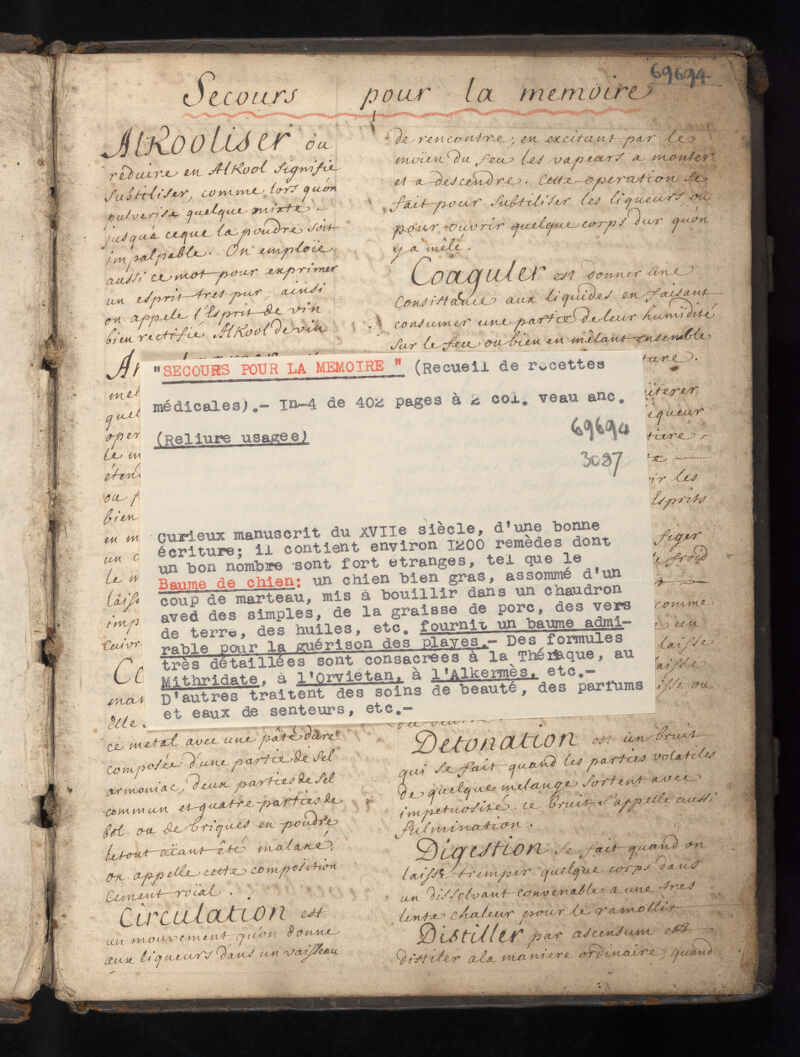 69694
Secours pour la memoire
Alkooliser ou
reduire en Alkool Signifie
Subtiliser, comme lors quon
pulverise quelque mixte
jusqu'a ceque la poudre soit
impalpable. On emploïe
aussi ce mot pour exprimer
un esprit tres pur; ainsi
on appele l'Esprit de vin
bien rectifié Alkool de vin
mel
quel
oper
le m
étend
ou p
bien
en m
un c
le m
laiss
imp
Cuivr
Ce
man
Elle
ce metal avec une pâte dure
composée d'une partie de Sel
armoniac, deux parties de Sel
commun et quatre parties de
bol ou de briques en poudre
letout aïant été malaxé,
on appelle cette composition
Cement roïal.
Circulation est
un mouvement qu'on donne
aux liqueurs dans un vaisseau
de rencontre; en excitant par le
moïen du feu les vapeurs a monter
et a descendre. Cette operation se
fait pour Subtiliser les liqueurs ou
pour ouvrir quelque corps dur quon
y a mêlé.
Coaguler est donner une
Consistance aux liquides en faisant
consumer une partie de leur humidité
Sur le feu ou bien en mêlant ensemble
iterer
iqueur
tiere
ir les
Esprits
figer
le froid
comme
laisse
laisse
isse ou
Detonation est un bruit
qui se fait quand les parties volatiles
de quelque melange Sortent avec
impetuosité. ce bruit s'appelle aussi
fulmination.
Digestion Se fait quand on
laisse tremper quelque corps dans
un dissolvant convenable a une tres
lente chaleur pour le ramollir
Distiller par ascensum est
distiler ala maniere ordinaire, quand
"SECOURS POUR LA MEMOIRE " (Recueil de recettes
médicales).- In-4 de 402 pages à 2 col. veau anc.
(Reliure usagee)
69694
3037
Curieux manuscrit du XVIIe siècle, d'une bonne
écriture; il contient environ 1200 remèdes dont
un bon nombre sont fort etranges, tel que le
Baume de chien: un chien bien gras, assommé d'un
coup de marteau, mis à bouillir dans un chaudron
aved des simples, de la graisse de porc, des vers
de terre, des huiles, etc. fournit un baume admi-
rable pour la guérison des playes.- Des formules
très détaillées sont consacrées à la Thériaque, au
Mithridate, à l'Orviétan, à l'Alkermès, etc.-
D'autres traitent des soins de beauté, des parfums
et eaux de senteurs, etc.-